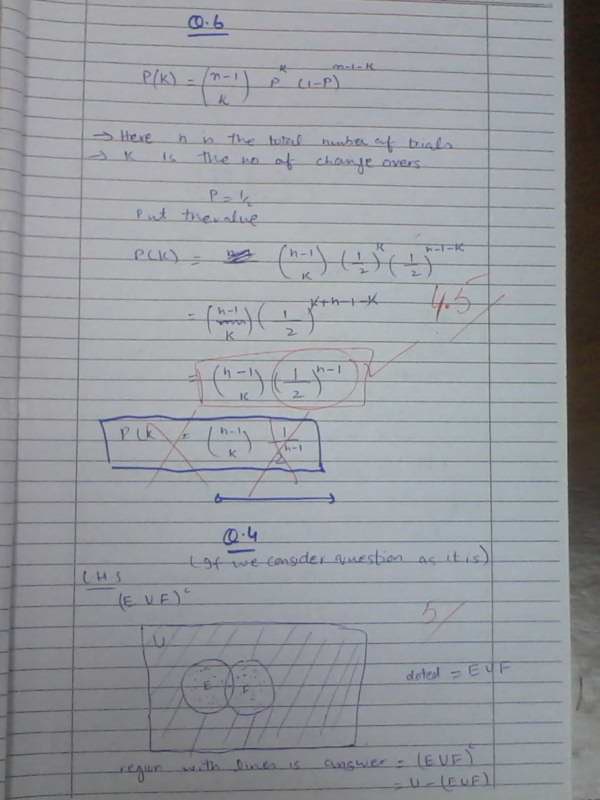 Q.6
P(K) = (n-1 K) P^K (1-P)^n-1-K
→ Here n is the total number of trials
→ K is the no of change overs
P = 1/2
Put the value
P(K) = (n-1 K) (1/2)^K (1/2)^n-1-K
4.5
= (n-1 K) (1/2)^K+n-1-K
= (n-1 K) (1/2)^n-1
P(K = (n-1 K) 1/2^n-1
Q.4
(If we consider question as it is)
LHS
(E ∪ F)^c
5
U
E F
doted = E ∪ F
region with lines is answer = (E ∪ F)^c
= U - (E ∪ F)